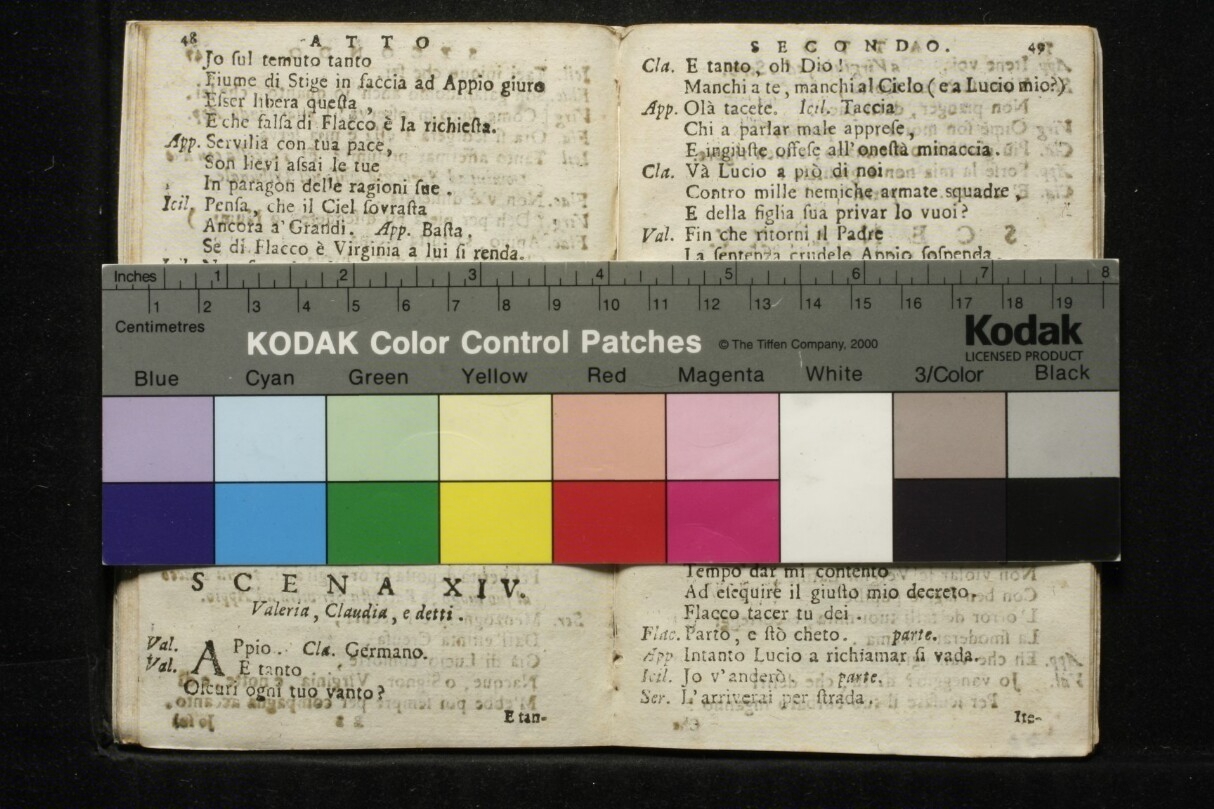 48 A T T O
Jo ſul temuto tanto
Fiume di Stige in faccia ad Appio giuro
Eſſer libera queſta,
E che falſa di Flacco è la richieſta.
App. Servilia con tua pace,
Son lievi aſsai le tue
In paragon delle ragioni ſue.
Icil. Penſa, che il Ciel ſovraſta
Ancora a' Grandi. App. Baſta.
Se di Flacco è Virginia a lui ſi renda.
S E C O N D O. 49
Cla. E tanto, oh Dio!
Manchi a te, manchi al Cielo (e a Lucio mio?)
App. Olà tacete. Icil. Taccia
Chi a parlar male appreſe,
E ingiuſte offeſe all'oneſtà minaccia.
Cla. Và Lucio a piò di noi
Contro mille nemiche armate squadre,
E della figlia ſua privar lo vuoi?
Val. Fin che ritorni il Padre
La ſentenza crudele Appio ſoſpenda.
Inches 1 2 3 4 5 6 7 8
1 2 3 4 5 6 7 8 9 10 11 12 13 14 15 16 17 18 19
Centimetres
KODAK Color Control Patches © The Tiffen Company, 2000
Kodak
LICENSED PRODUCT
Blue Cyan Green Yellow Red Magenta White 3/Color Black
S C E N A X I V.
Valeria, Claudia, e detti.
Val. APpio. Cla. Germano.
Val. E tanto
Oſcuri ogni tuo vanto?
E tan-
Tempo dar mi contento
Ad eſequire il giuſto mio decreto.
Flacco tacer tu dei.
Flac. Parto, e ſtò cheto. parte.
App. Intanto Lucio a richiamar ſi vada.
Icil. Jo v'anderò. parte.
Ser. L'arriverai per ſtrada.
Ite-